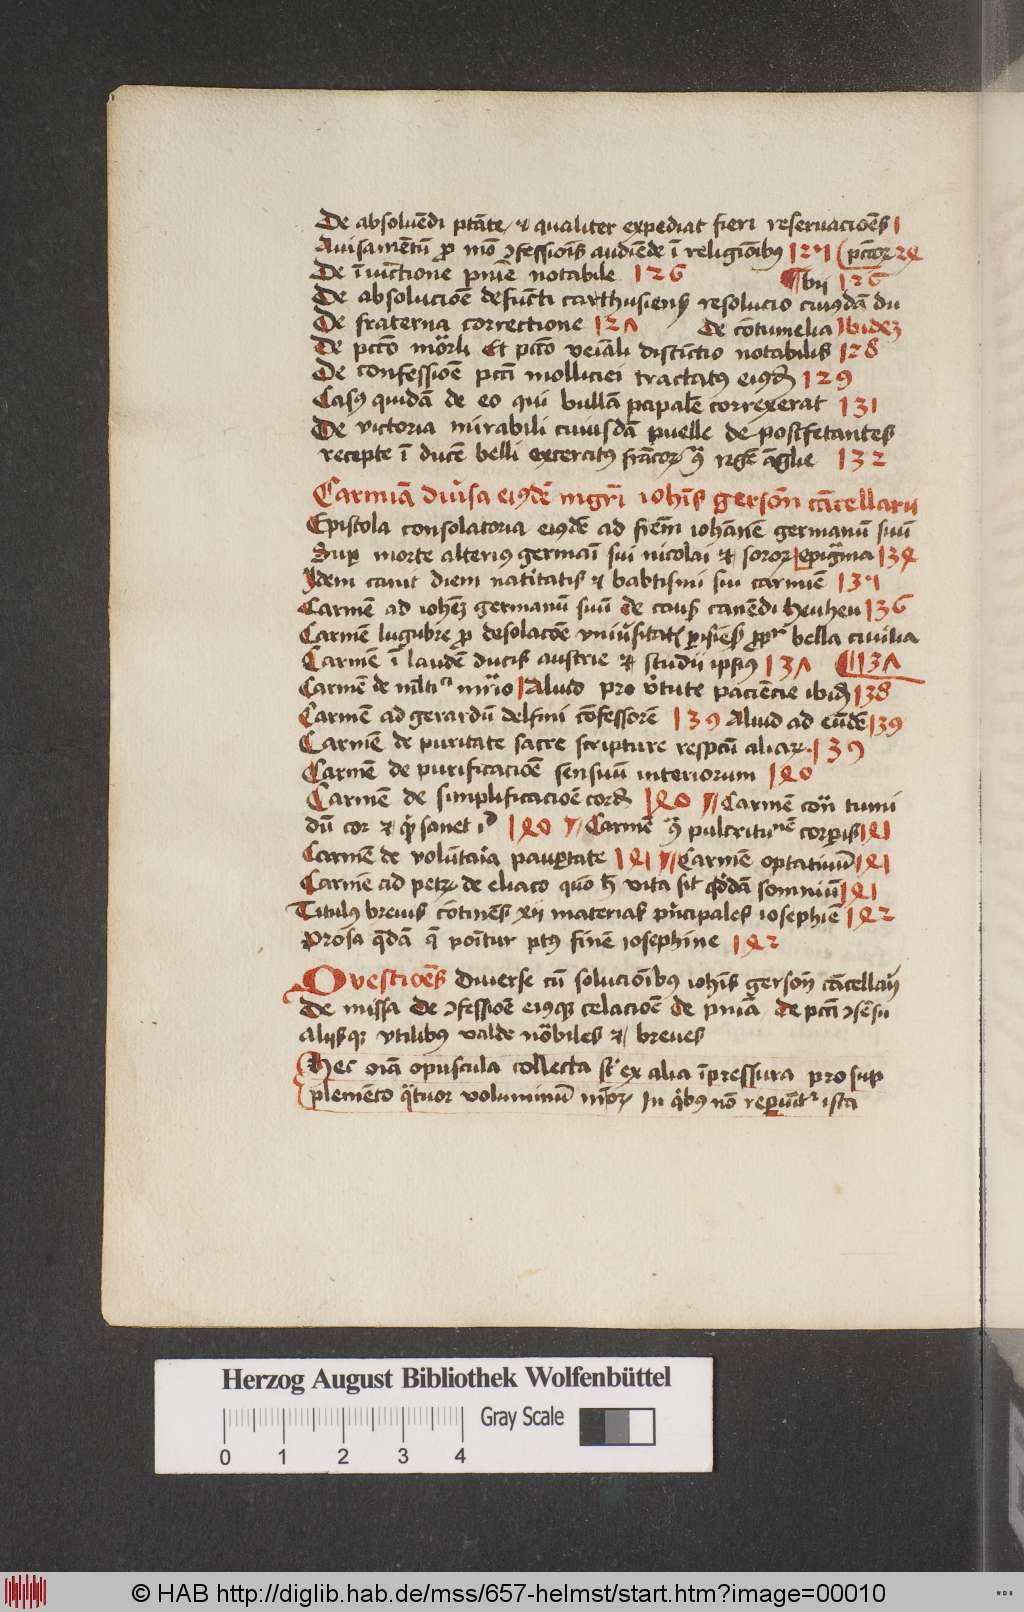 De absoluēdi ptāte et qualiter expediat fieri reseruacioēs
Auisamētū ꝓ mō ꝯfessiōis audiēde ī religiōibus
De iniūctione pniē notabile 126
De absolucioē defuncti carthusiensis resolucio cuiusdā du
De fraterna correctione 127 De cōtumelia Ibidem
De pctō mortali Et pctō veniali distinctio notabilis 128
De confessioē pcti molliciei tractatus eiusdem 129
Casus quidā de eo qui bullā papalē correxerat 131
De victoria mirabili cuiusdā puelle de postfetantes
recepte ī ducē belli exercitus francorum regē anglie 132
Carmīa diuersa eiusdē mgri iohīs gerson cācellarii
Epistola consolatoria eiusdē ad frēm iohānē germanū suū
Super morte alterius germani sui nicolai et sororum epigrama 134
Idem canit diem natitatis et babtismi sui carmine
Carmē ad iohēm germanū suū de causis canēdi heuheu 136
Carmē lugubre ꝓ desolacōe vniuersitatis parisiēsis propter bella ciuilia
Carmē ī laudē ducis austrie et studii ipsius 137 137
Carmē de Aliud pro virtute paciēcie ibidem 138
Carmē ad gerardū delfini cōfessorē 139 Aliud ad eūdē 139
Carmē de puritate sacre scripture respectu aliarum 139
Carmē de purificacioē sensuū interiorum 140
Carmē de simplificacioē cordis 140 Carmē contra tumi
dū cor et 140 Carmē pulcritudinē corporis 141
Carmē de volūtaria paupertate 141 Carmē optatiuū 141
Carmē ad petrum de eliaco quō hec vita sit quedā somniū 141
Titulus breuis cōtinēs xii materias pricipales iosephiē 142
Prosa quedā que ponitur post finē iosephine 142
Questioēs diuerse cū solucioībus iohīs gerson cācellarii
De missa De ꝯfessioē eiusque celacioē de pniā de
aliisque vtilibus valde nobiles et breues
Hec oīa opuscula collecta st ex alia īpressura pro sup
plemēto quatuor voluminū In quibus nō reperiūtur ista
Herzog August Bibliothek Wolfenbüttel
0 1 2 3 4
Gray Scale
© HAB http://diglib.hab.de/mss/657-helmst/start.htm?image=00010